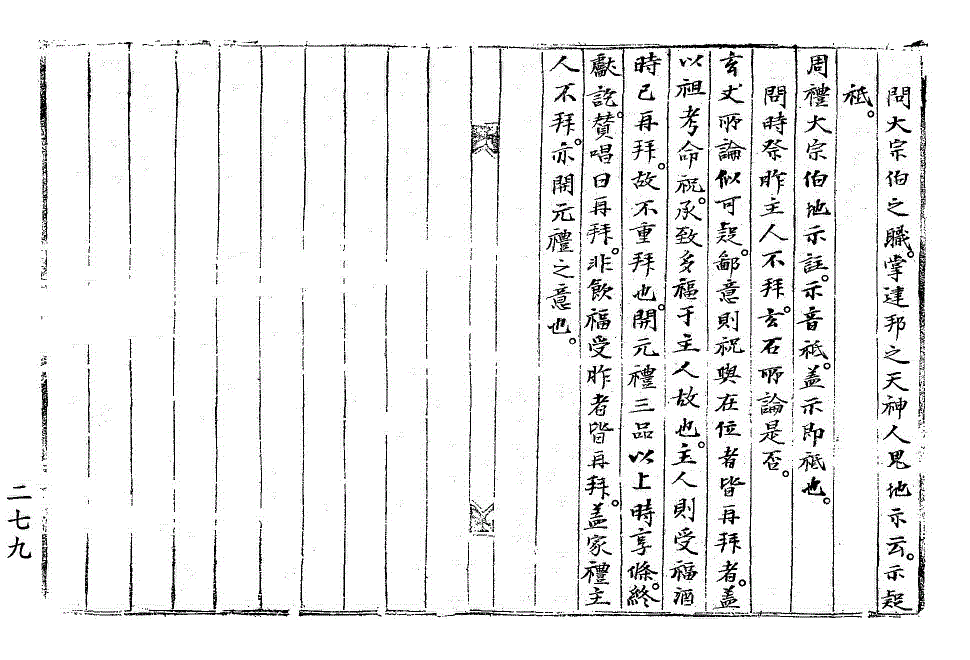 問大宗伯之職。掌建邦之天神人鬼地示云。示疑
祗。
周禮大宗伯地示註。示音祗。盖示即祗也。
問時祭昨主人不拜。玄石所論是否。
玄丈所論似可疑。鄙意則祝與在位者皆再拜者。盖
以祖考命祝。承致多福于主人故也。主人則受福酒
時已再拜。故不重拜也。開元禮三品以上時享條。終
獻訖。贊唱曰再拜。非飮福受昨者皆再拜。盖家禮主
人不拜。亦開元禮之意也。
二七九